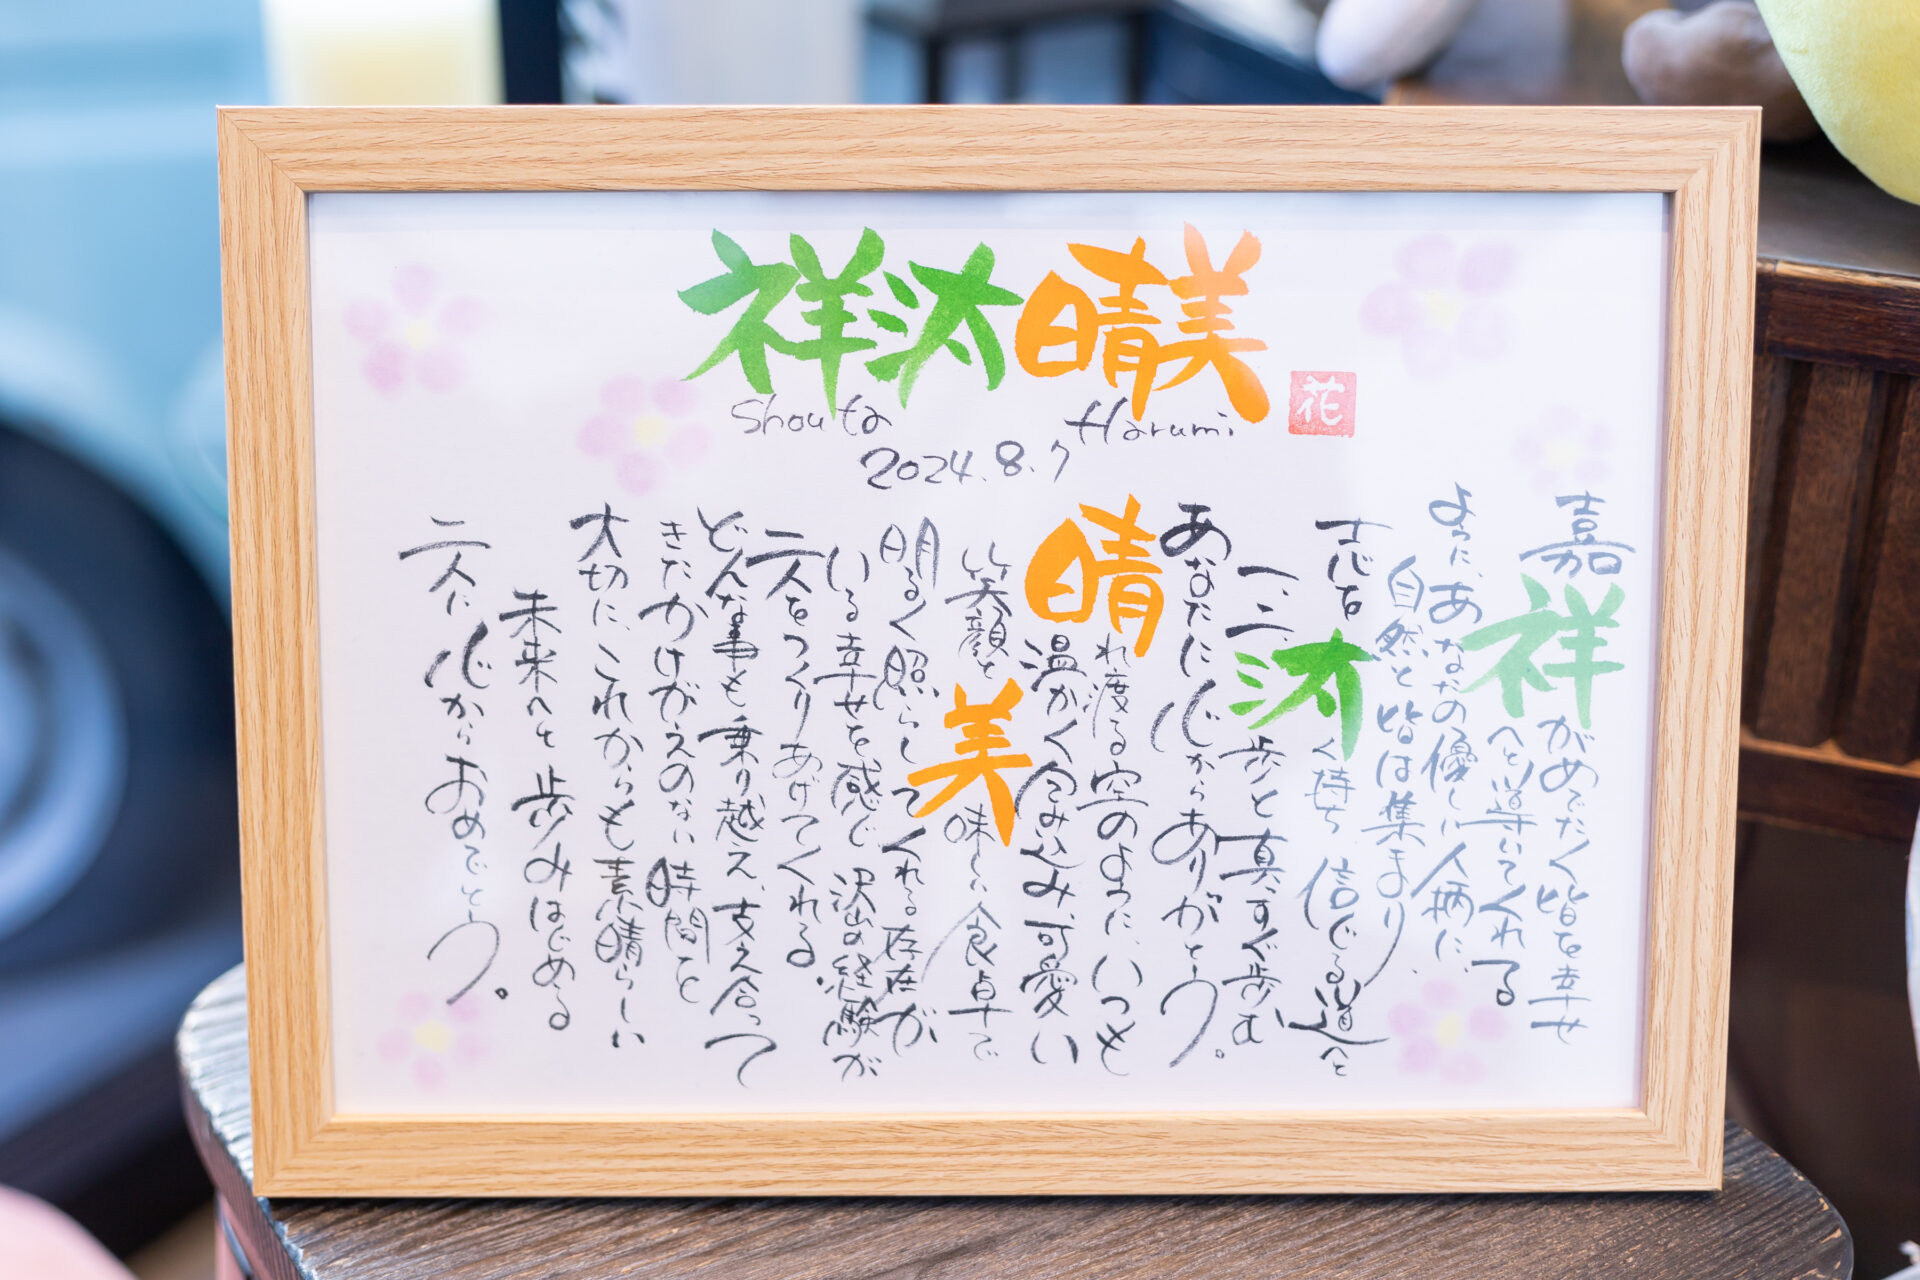 祥汰 晴美
Shouta Harumi
花
2024.8.7
嘉祥がめでたく皆を幸せ
へと導いてくれる
ように、あなたの優しい人柄に、
自然と皆は集まり
志を汰く持ち 信じる道へと
一、二、歩と真っすぐ歩む
あなたに心からありがとう。
晴れ渡る空のように、いつも
温かく包み込み、可愛い
笑顔と美味しい食卓で
明るく照らしてくれる存在が
いる幸せを感じ 沢山の経験が
二人をつくりあげてくれる。
どんな事も乗り越え、支え合って
きたかけがえのない時間を
大切に、これからも素晴らしい
未来へと歩みはじめる
二人に心からおめでとう。